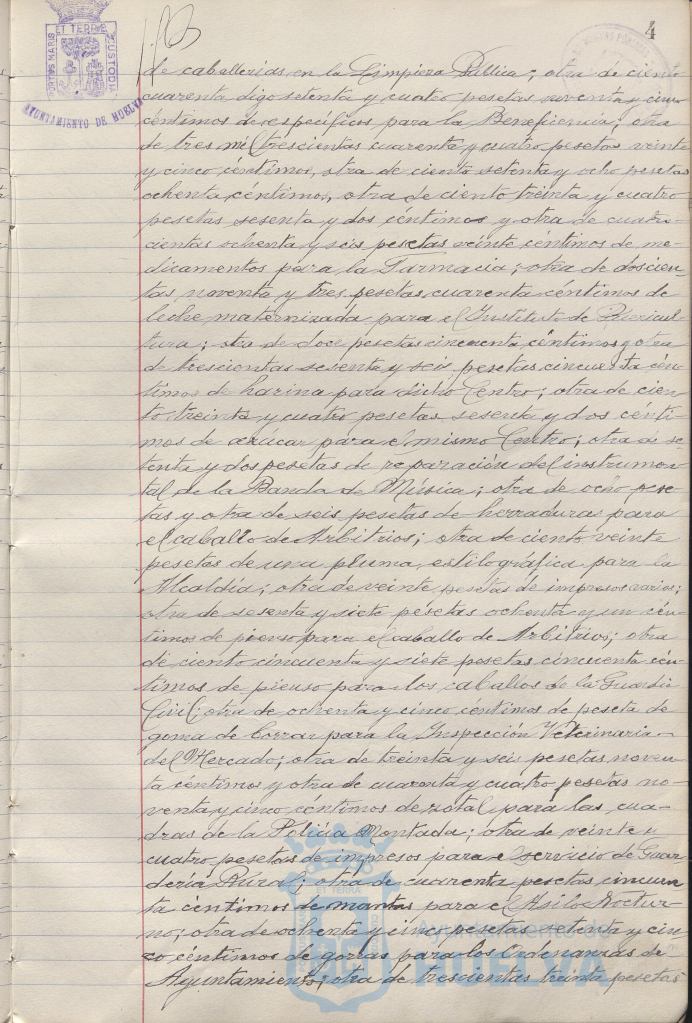 4
PORTUS MARIS ET TERRE CUSTODIA
AYUNTAMIENTO DE HUELVA
de caballerías en la Limpieza Pública; otra de ciento
cuarenta digo setenta y cuatro pesetas noventa y cinco
céntimos de específicos para la Beneficencia; otra
de tres mil trescientas cuarenta y cuatro pesetas veinte
y cinco céntimos, otra de ciento setenta y ocho pesetas
ochenta céntimos, otra de ciento treinta y cuatro
pesetas sesenta y dos céntimos y otra de cuatro-
cientas ochenta y seis pesetas veinte céntimos de me-
dicamentos para la Farmacia; otra de doscien-
tas noventa y tres pesetas cuarenta céntimos de
leche maternizada para el Instituto de Puericul-
tura; otra de doce pesetas cincuenta céntimos y otra
de trescientas sesenta y seis pesetas cincuenta cén-
timos de harina para dicho Centro; otra de cien-
to treinta y cuatro pesetas sesenta y dos cénti-
mos de azucar para el mismo Centro; otra de se-
tenta y dos pesetas de reparación del instrumen-
tal de la Banda de Música; otra de ocho pese-
tas y otra de seis pesetas de herraduras para
el caballo de Arbitrios; otra de ciento veinte
pesetas de una pluma estilográfica para la
Alcaldía; otra de veinte pesetas de impresos varios;
otra de sesenta y siete pesetas ochenta y un cén-
timos de pienso para el caballo de Arbitrios; otra
de ciento cincuenta y siete pesetas cincuenta cén-
timos de pienso para los caballos de la Guardia
Civil; otra de ochenta y cinco céntimos de peseta de
goma de borrar para la Inspección Veterinaria
del Mercado; otra de treinta y seis pesetas noven-
ta céntimos y otra de cuarenta y cuatro pesetas no-
venta y cinco céntimos de zotal para las cua-
dras de la Policía Montada; otra de veinte y
cuatro pesetas de impresos para el servicio de Guar-
dería Rural; otra de cuarenta pesetas cincuen-
ta céntimos de mantas para el Asilo Noctur-
no; otra de ochenta y cinco pesetas setenta y cin-
co céntimos de gorras para los Ordenanzas de
Ayuntamiento; otra de trescientas treinta pesetas
Ayuntamiento de
HUELVA